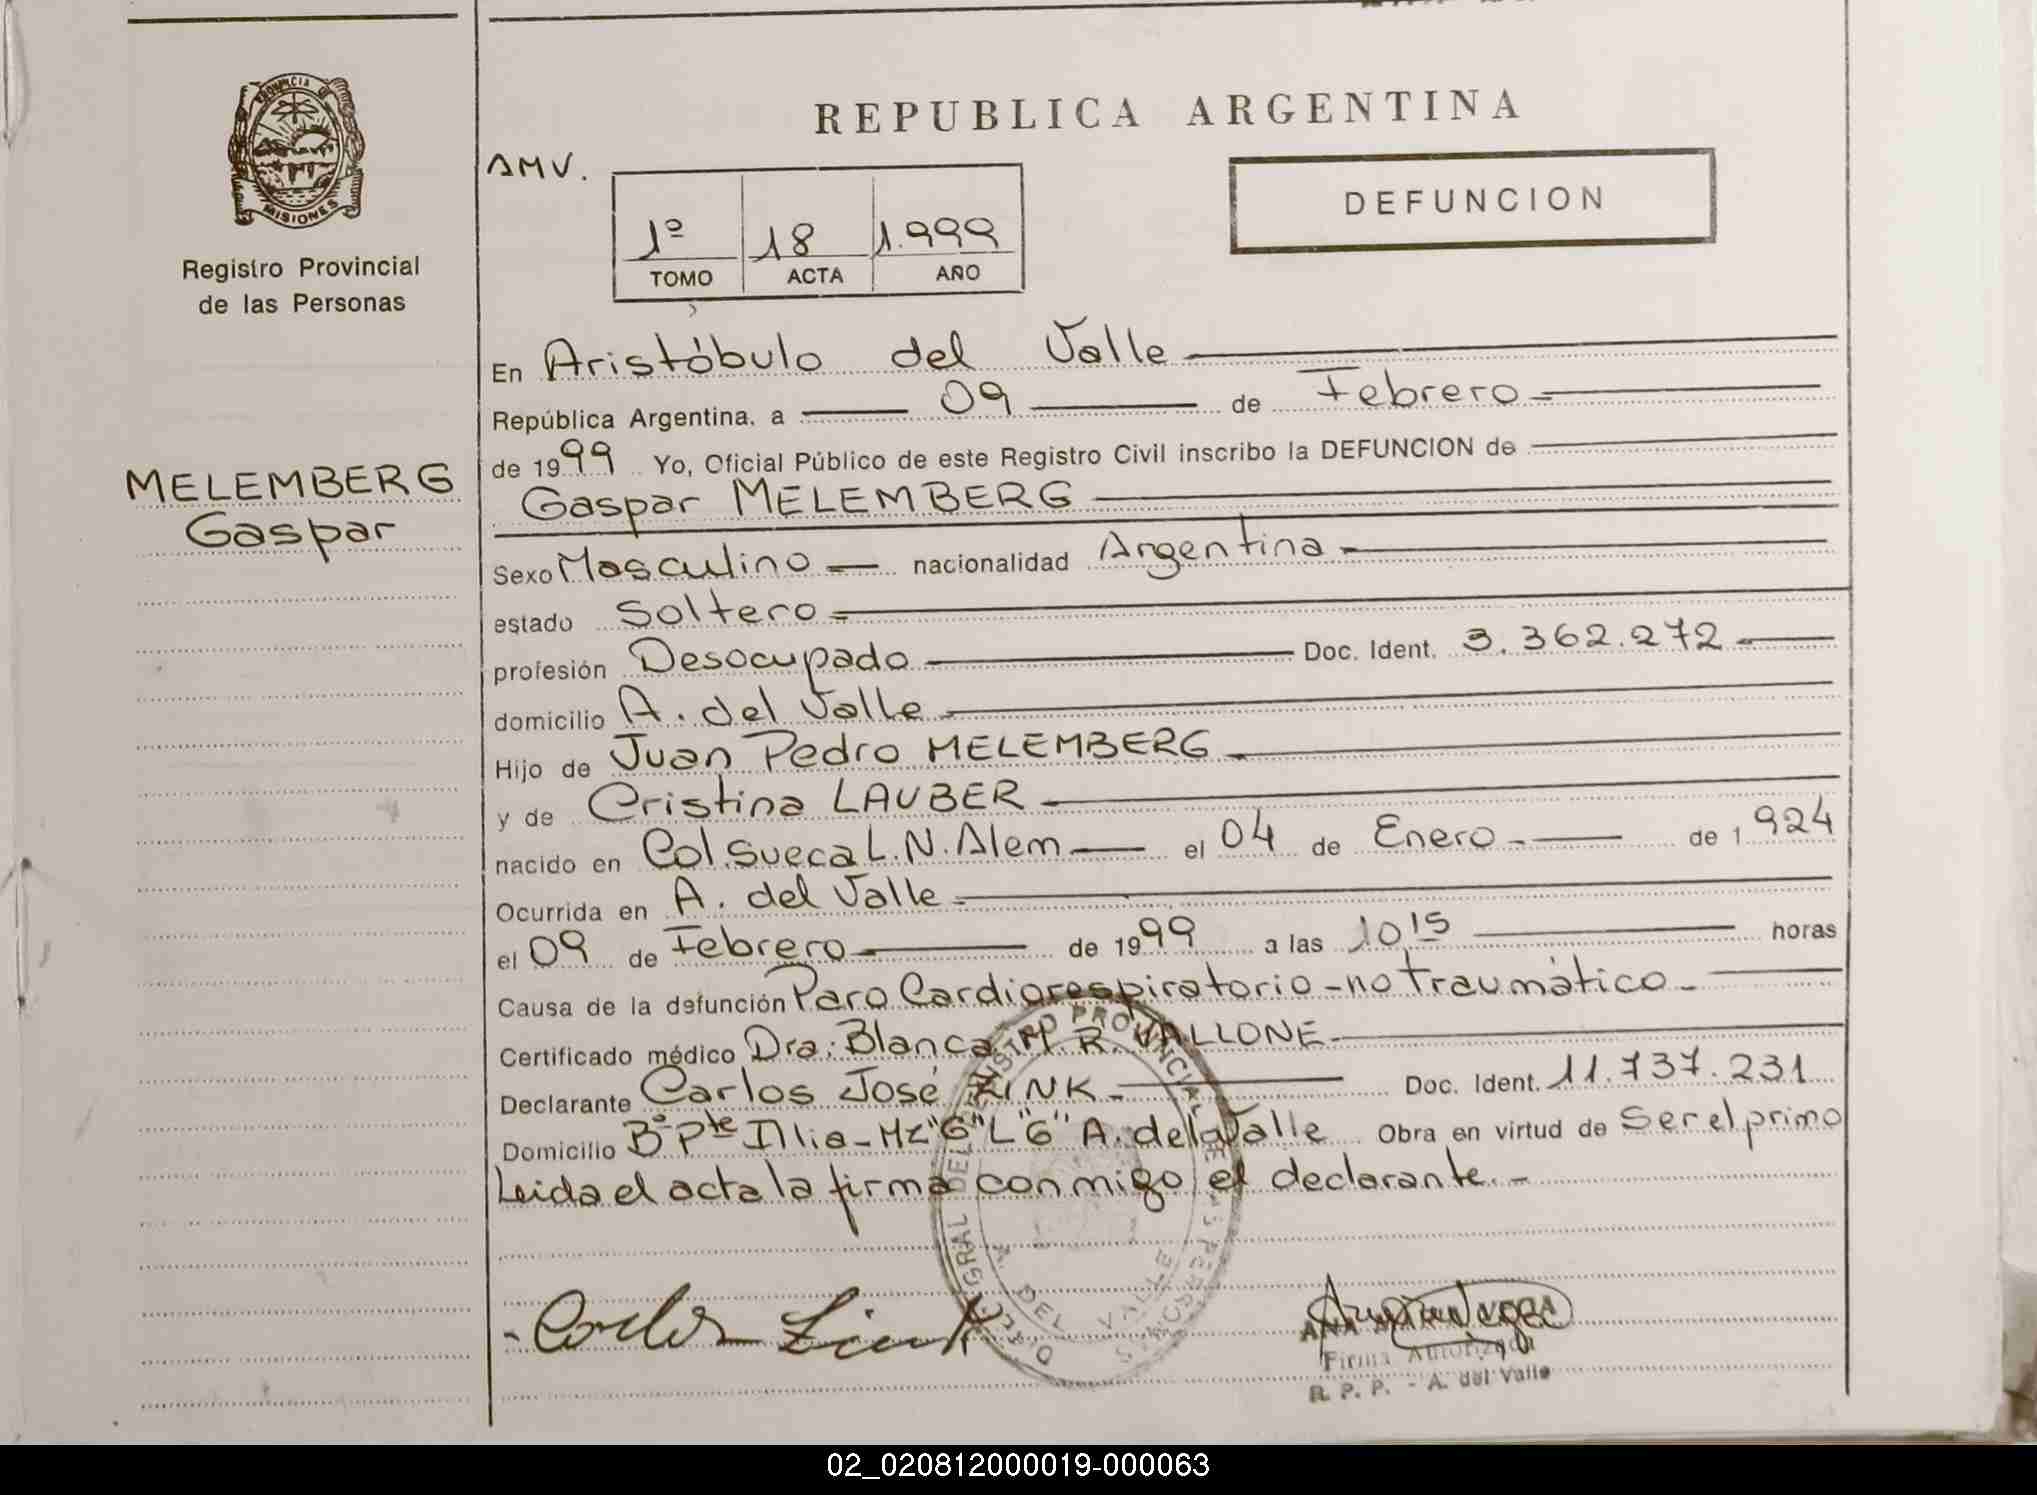 PROVINCIA DE
MISIONES
Registro Provincial
de las Personas
MELEMBERG
Gaspar
REPUBLICA ARGENTINA
AMV.
DEFUNCION
1º 18 1.999
TOMO ACTA AÑO
En Aristóbulo del Valle
República Argentina, a 09 de Febrero
de 1999 Yo, Oficial Público de este Registro Civil inscribo la DEFUNCION de
Gaspar MELEMBERG
Sexo Masculino nacionalidad Argentina
estado Soltero
profesión Desocupado Doc. Ident. 3.362.272
domicilio A. del Valle
Hijo de Juan Pedro MELEMBERG
y de Cristina LAUBER
nacido en Col. Sueca L.N. Alem el 04 de Enero de 1924
Ocurrida en A. del Valle
el 09 de Febrero de 1999 a las 10 15 horas
Causa de la defunción Paro Cardiorespiratorio - no traumático -
Certificado médico Dra: Blanca M. R. VALLONE
Declarante Carlos José LINK Doc. Ident. 11.737.231
Domicilio Bº Pte Illia - MZ "G" L "6" A. del Valle Obra en virtud de Ser el primo
Leida el acta la firma conmigo el declarante. -
Carlos Link
GRAL DEL REGISTRO PROVINCIAL DE LAS PERSONAS
A. DEL VALLE
ANA
Firma Autorizada
R. P. P. - A. del Valle
02_020812000019-000063